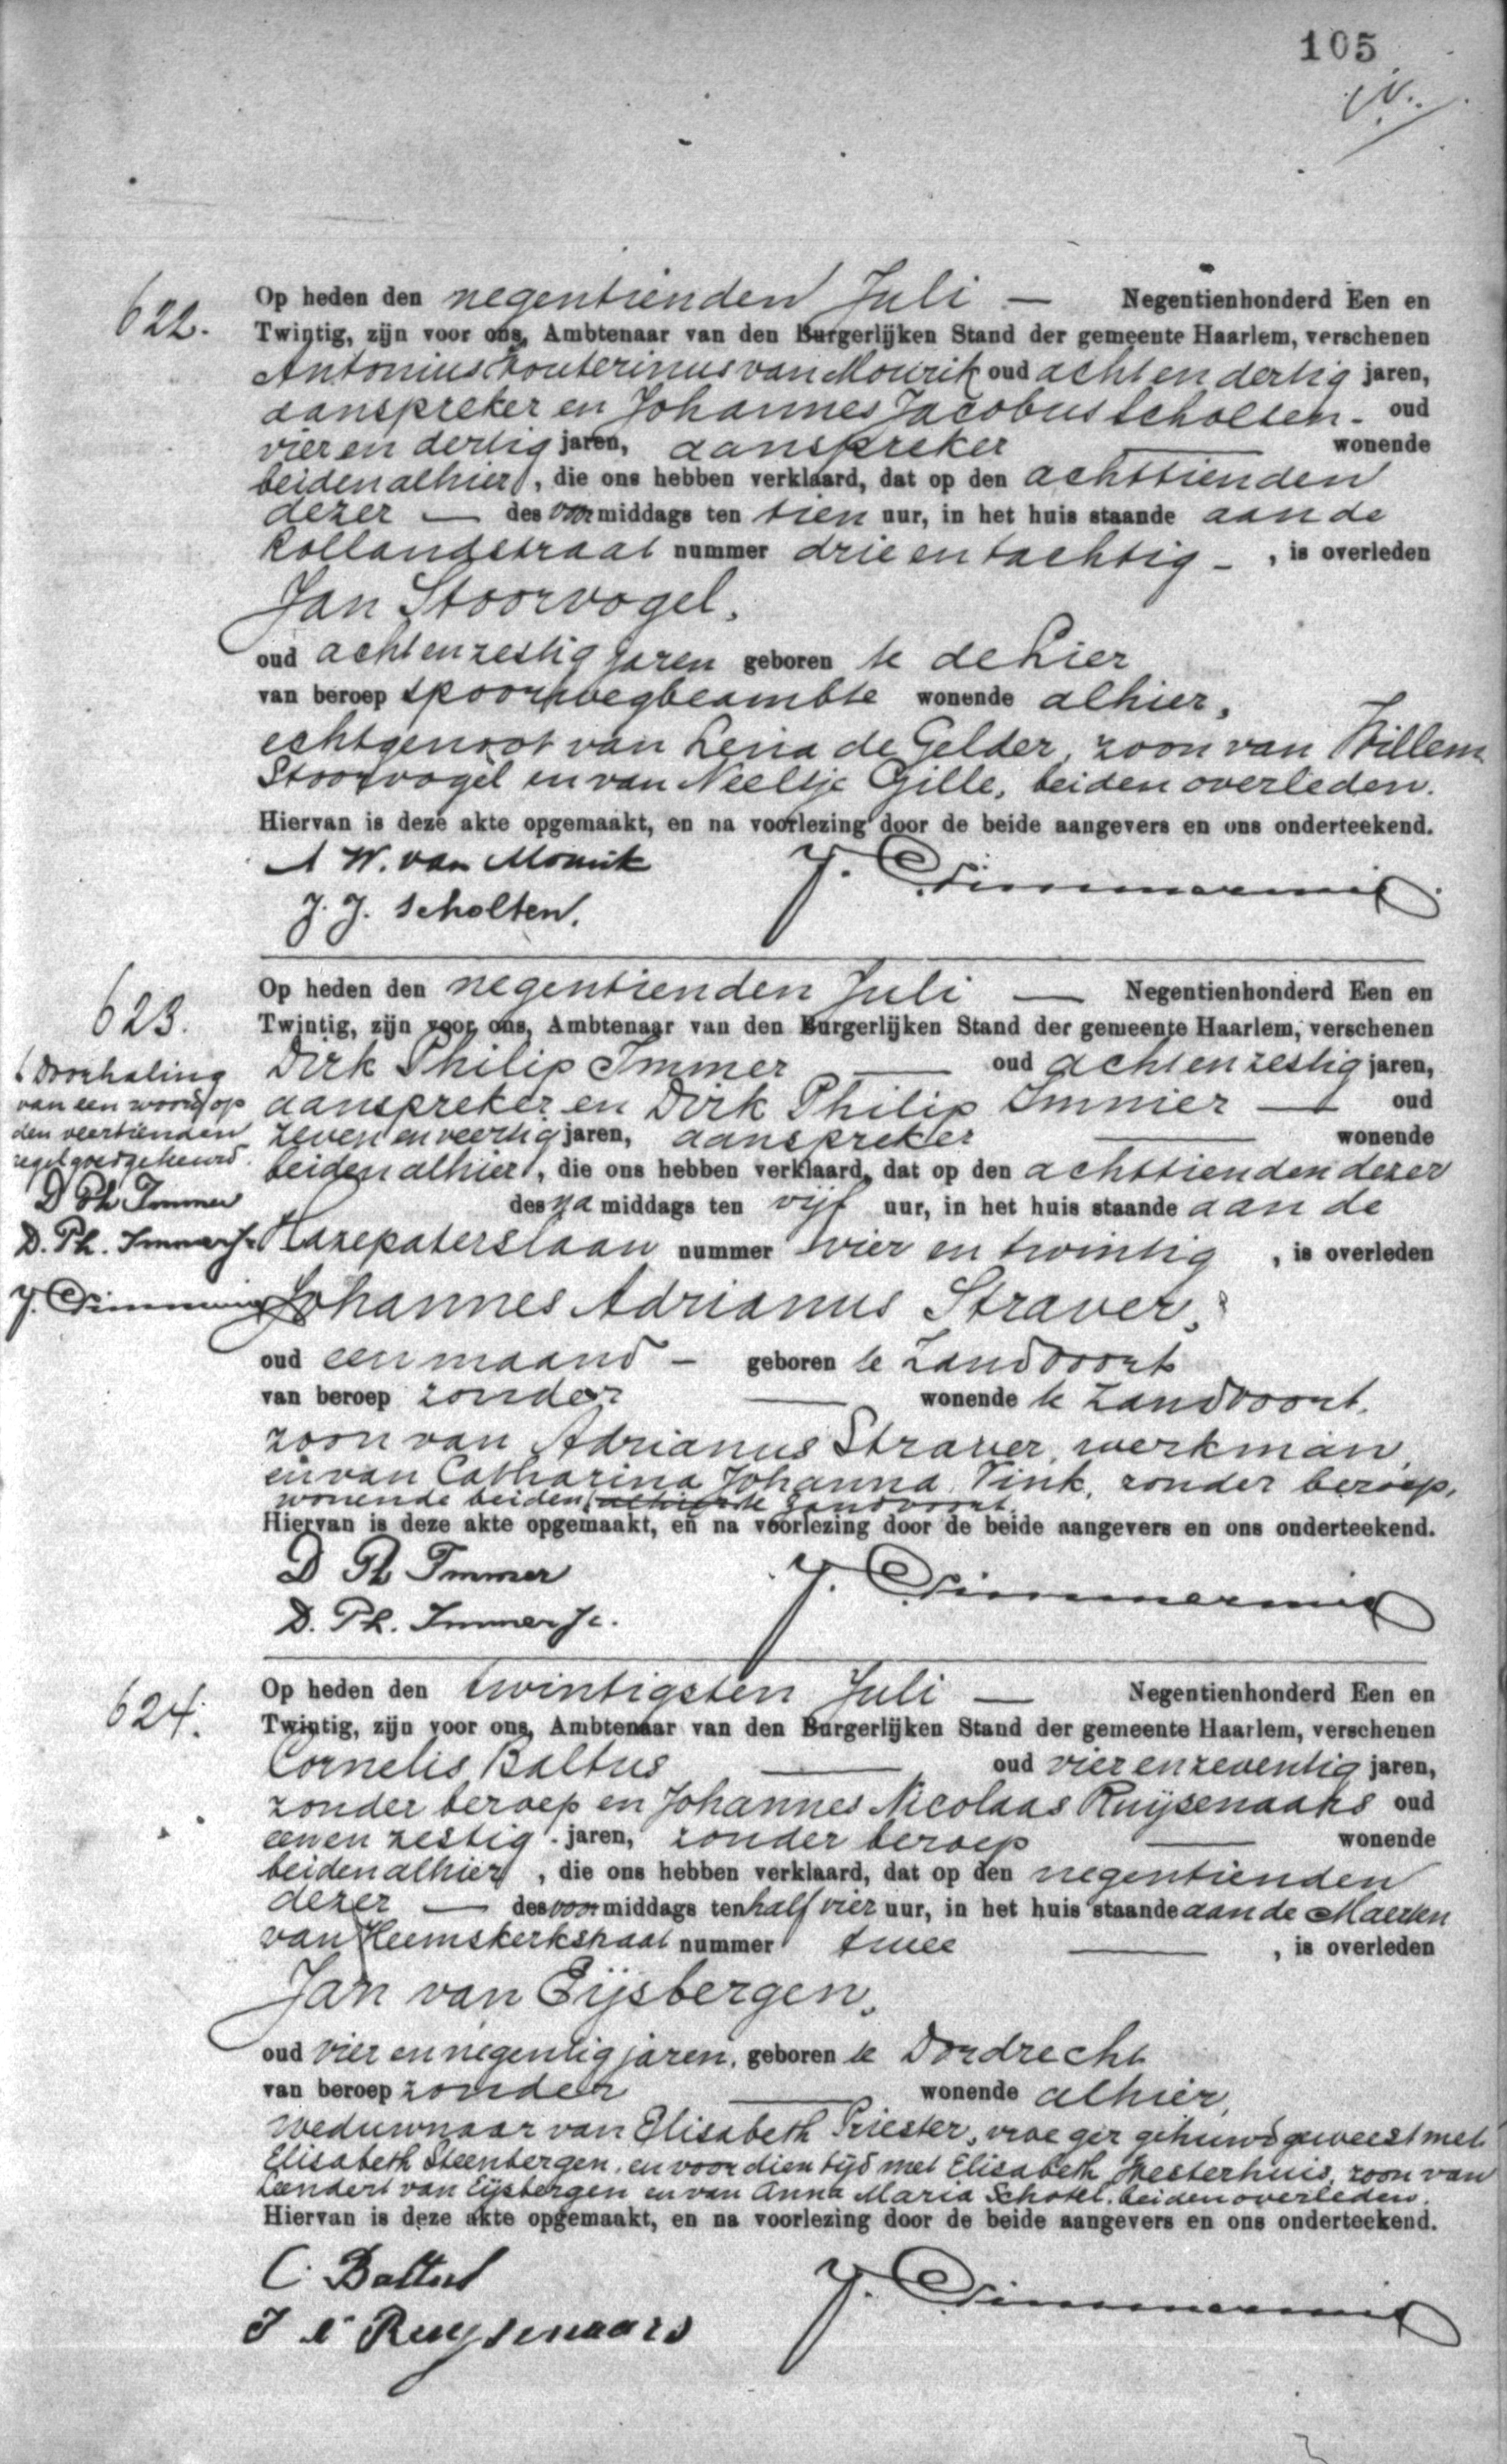 105
622.
Op heden den negentienden Juli — Negentienhonderd Een en
Twintig, zijn voor ons, Ambtenaar van den Burgerlijken Stand der gemeente Haarlem, verschenen
Antonius Wouterinus van Mourik oud acht en dertig jaren,
aanspreker en Johannes Jacobus Scholten - oud
vier en dertig jaren, aanspreker — wonende
beiden alhier, die ons hebben verklaard, dat op den achttienden
dezer — des voormiddags ten tien uur, in het huis staande aan de
Rollandstraat nummer drie en tachtig -, is overleden
Jan Stoorvogel,
oud acht en zestig jaren geboren te de Lier
van beroep spoorwegbeambte wonende alhier,
echtgenoot van Lena de Gelder, zoon van Willem
Stoorvogel en van Neeltje Gille, beiden overleden.
Hiervan is deze akte opgemaakt, en na voorlezing door de beide aangevers en ons onderteekend.
A W. van Mourik
J. J. Scholten.
623.
Op heden den negentienden Juli — Negentienhonderd Een en
Twintig, zijn voor ons, Ambtenaar van den Burgerlijken Stand der gemeente Haarlem, verschenen
Dirk Philip Immer — oud acht en zestig jaren,
aanspreker en Dirk Philip Immer — oud
zeven en veertig jaren, aanspreker — wonende
beiden alhier, die ons hebben verklaard, dat op den achttienden dezer
des namiddags ten vijf uur, in het huis staande aan de
Hazepaterslaan nummer vier en twintig, is overleden
Johannes Adrianus Straver,
oud een maand - geboren te Zandvoort
van beroep zonder — wonende te Zandvoort.
zoon van Adrianus Straver, werkman,
en van Catharina Johanna Vink, zonder beroep,
wonende beiden alhier te Zandvoort.
Hiervan is deze akte opgemaakt, en na voorlezing door de beide aangevers en ons onderteekend.
D Ph Immer
D. Ph. Immer Jr.
Doorhaling
van een woord op
den veertienden
regel goedgekeurd.
D Ph Immer
D. Ph. Immer Jr
624.
Op heden den twintigsten Juli — Negentienhonderd Een en
Twintig, zijn voor ons, Ambtenaar van den Burgerlijken Stand der gemeente Haarlem, verschenen
Cornelis Baltus — oud vier en zeventig jaren,
zonder beroep en Johannes Nicolaas Ruijsenaars oud
een en zestig jaren, zonder beroep — wonende
beiden alhier, die ons hebben verklaard, dat op den negentienden
dezer — des voormiddags ten half vier uur, in het huis staande aan de Maerten
van Heemskerkstraat nummer twee —, is overleden
Jan van Eijsbergen,
oud vier en negentig jaren, geboren te Dordrecht
van beroep zonder — wonende alhier,
weduwnaar van Elisabeth Priester, vroeger gehuwd geweest met
Elisabeth Steenbergen, en voor dien tijd met Elisabeth Westerhuis, zoon van
Leendert van Eijsbergen en van Anna Maria Schotel, beiden overleden.
Hiervan is deze akte opgemaakt, en na voorlezing door de beide aangevers en ons onderteekend.
C. Baltus
J N Ruijsenaars